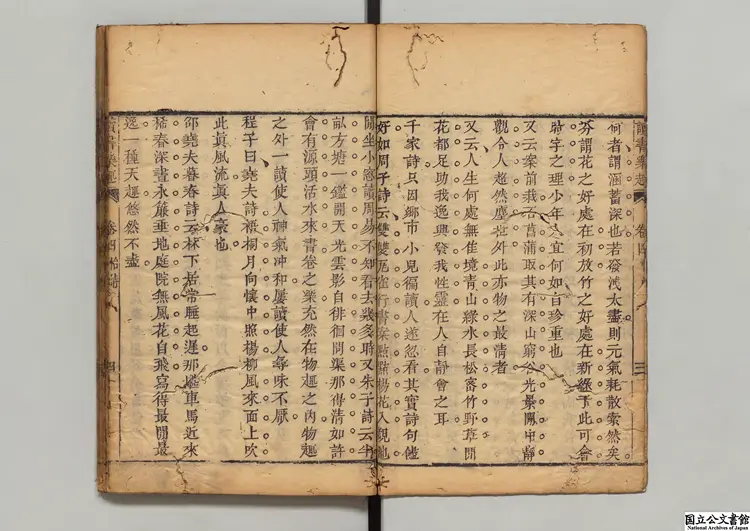 讀書樂趣 卷四 三
何者謂涵蓄深也若發洩太盡則元氣耗散索然矣
芬謂花之好處在初放竹之好處在新綠于此可會
時字之理少年人宜何如自珍重也
又云案前栽古菖蒲取其有深山窮谷光景閑中靜
觀令人超然塵壒外此亦物之最清者
又云人生何處無佳境青山綠水長松密竹野草閒
花都足助我逸興發我性靈在人自靜會之耳
千家詩只因鄉市小兒獨讀人遂忽看其實詩句佳
好如周子詩云雙雙瓦雀行書案點點楊花入硯池
閒坐小窓讀周易不知春去幾多時又朱子詩云半
畝方塘一鑑開天光雲影自徘徊問渠那得清如許
會有源頭活水來書卷之業充然在物趣之內物趣
之外一讀使人神氣冲和屢讀使人尋味不厭
程子曰堯夫詩梧桐月向懷中照楊柳風來面上吹
此眞風流眞人豪也
邵堯夫暮春詩云林下居常睡起遲那堪車馬近來
稀春深晝永簾垂地庭院無風花自飛寫得最閒最
逸一種天趣悠然不盡
讀書樂趣 卷四 詩 四
国立公文書館
National Archives of Japan